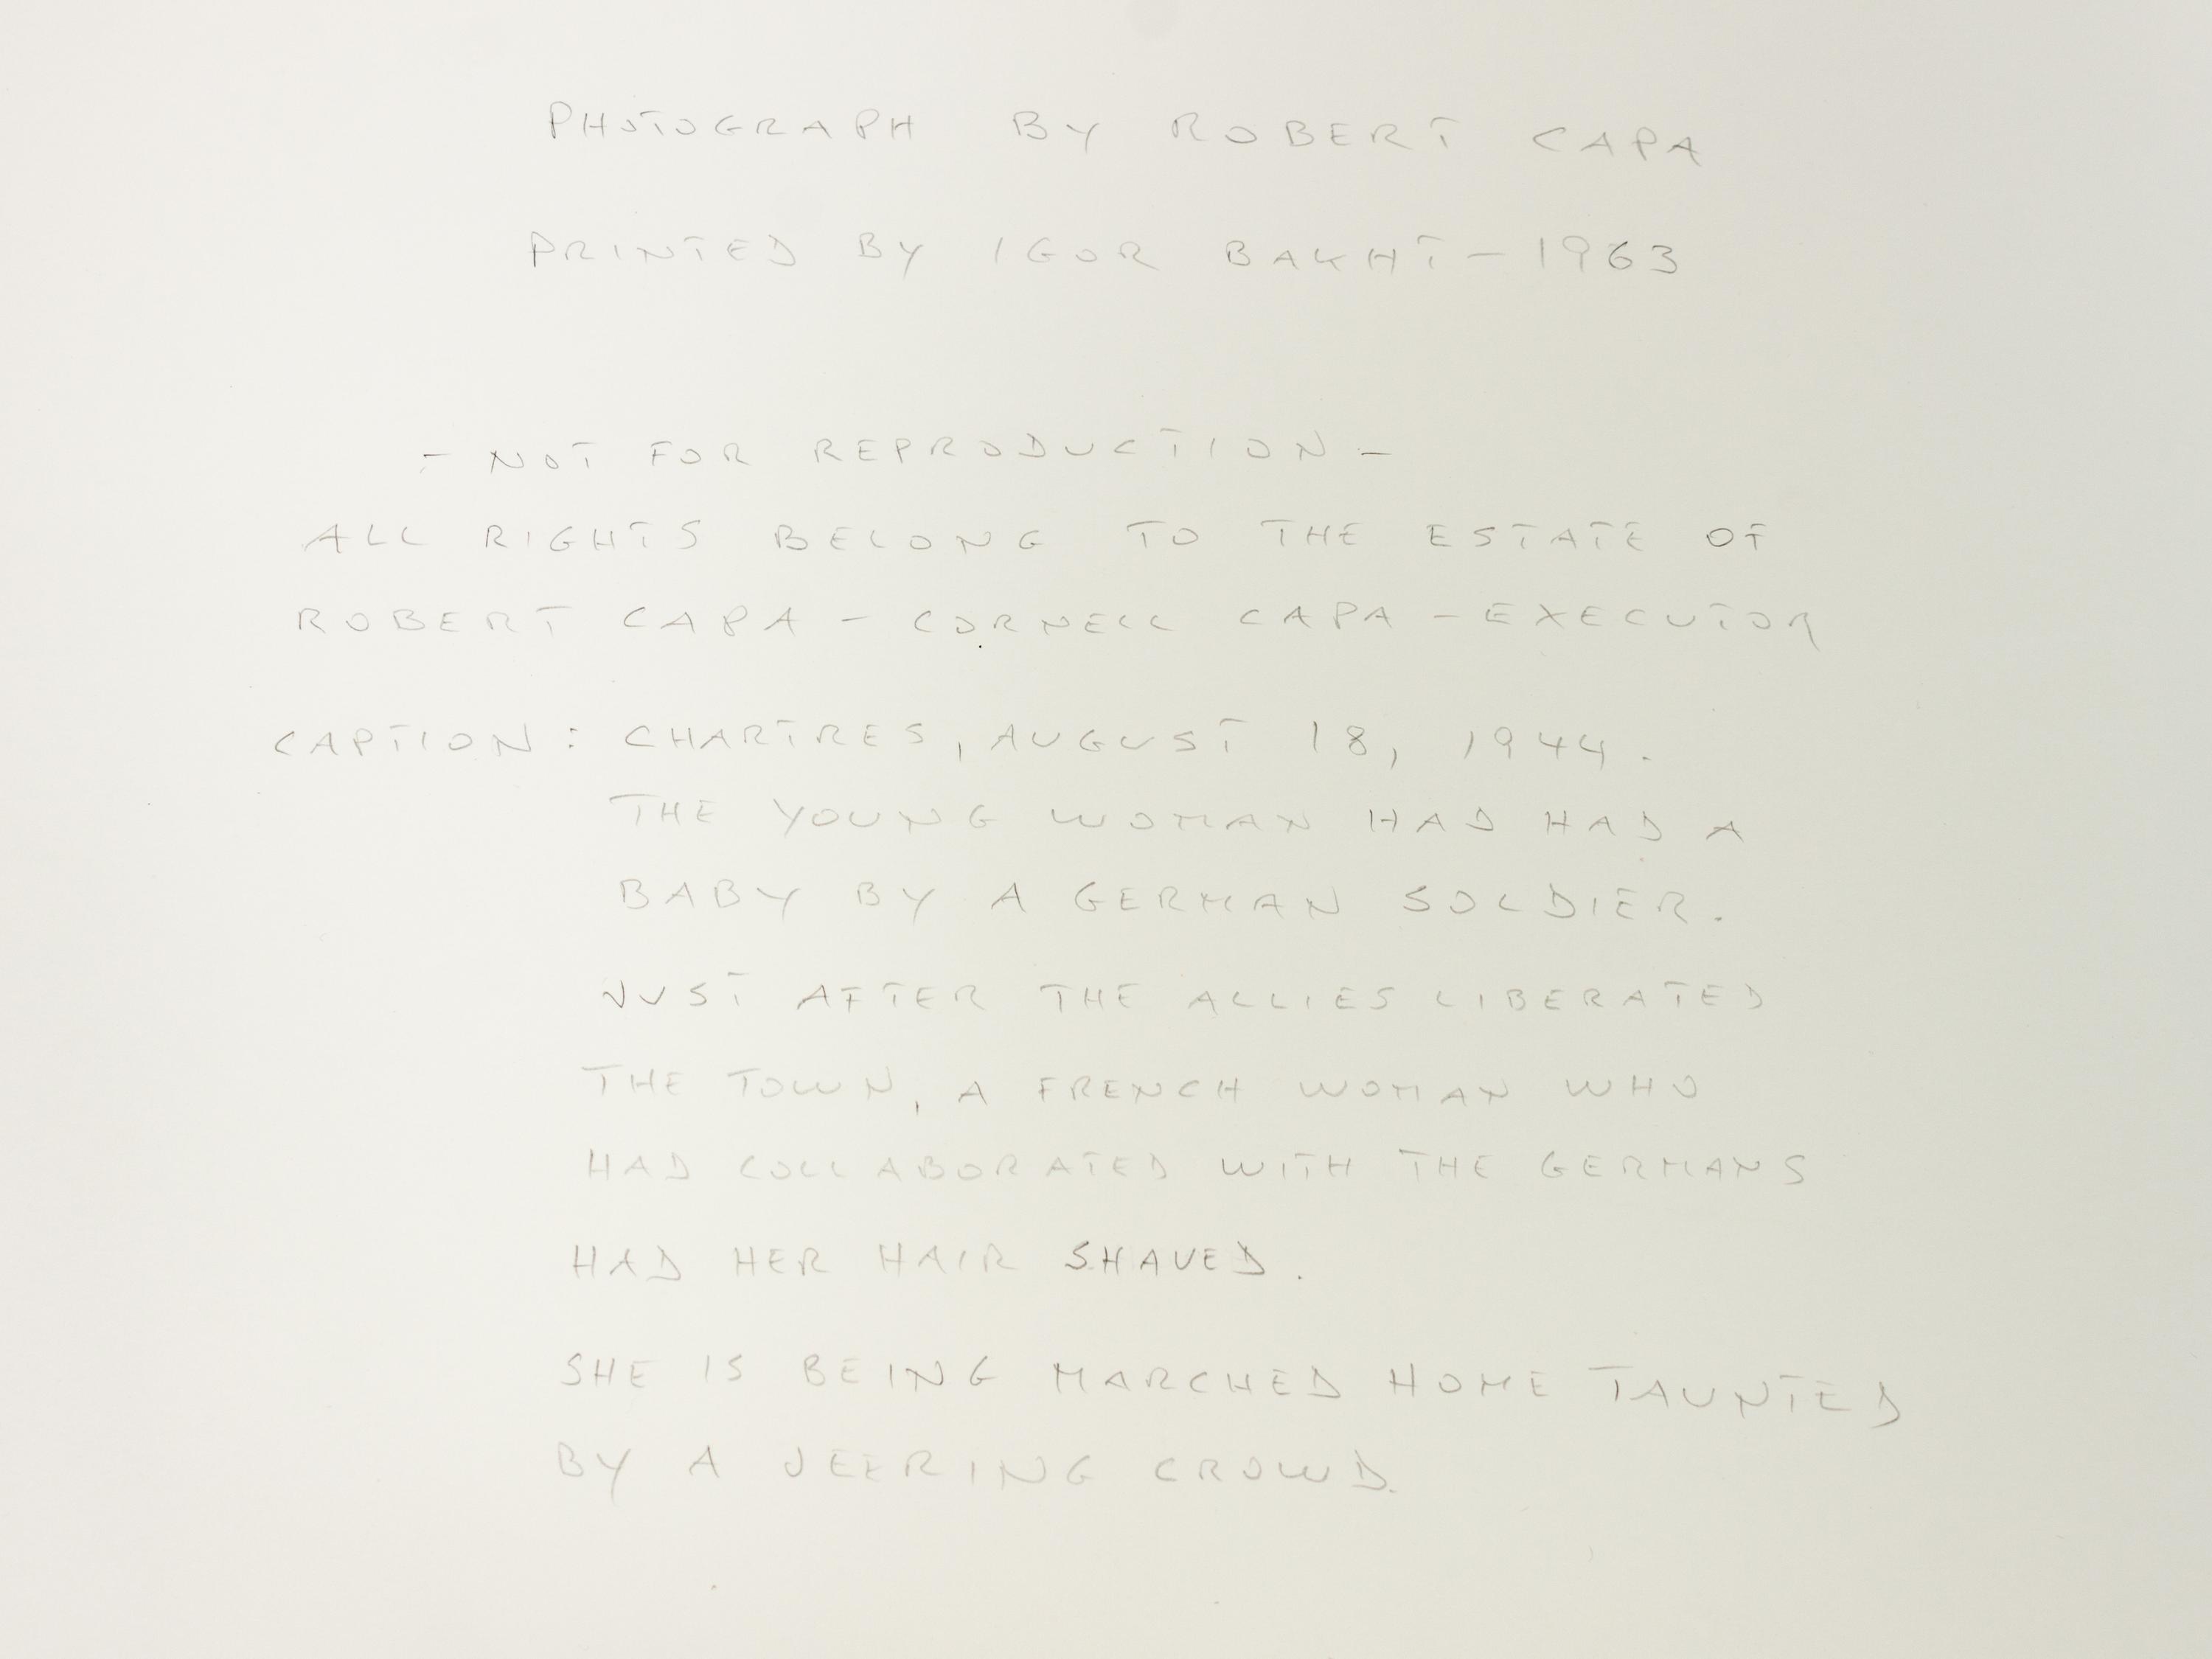 PHOTOGRAPH BY ROBERT CAPA
PRINTED BY IGOR BAKHT - 1963
- NOT FOR REPRODUCTION -
ALL RIGHTS BELONG TO THE ESTATE OF
ROBERT CAPA - CORNELL CAPA - EXECUTOR
CAPTION: CHARTRES, AUGUST 18, 1944.
THE YOUNG WOMAN HAD HAD A
BABY BY A GERMAN SOLDIER.
JUST AFTER THE ALLIES LIBERATED
THE TOWN, A FRENCH WOMAN WHO
HAD COLLABORATED WITH THE GERMANS
HAD HER HAIR SHAVED.
SHE IS BEING MARCHED HOME TAUNTED
BY A JEERING CROWD.